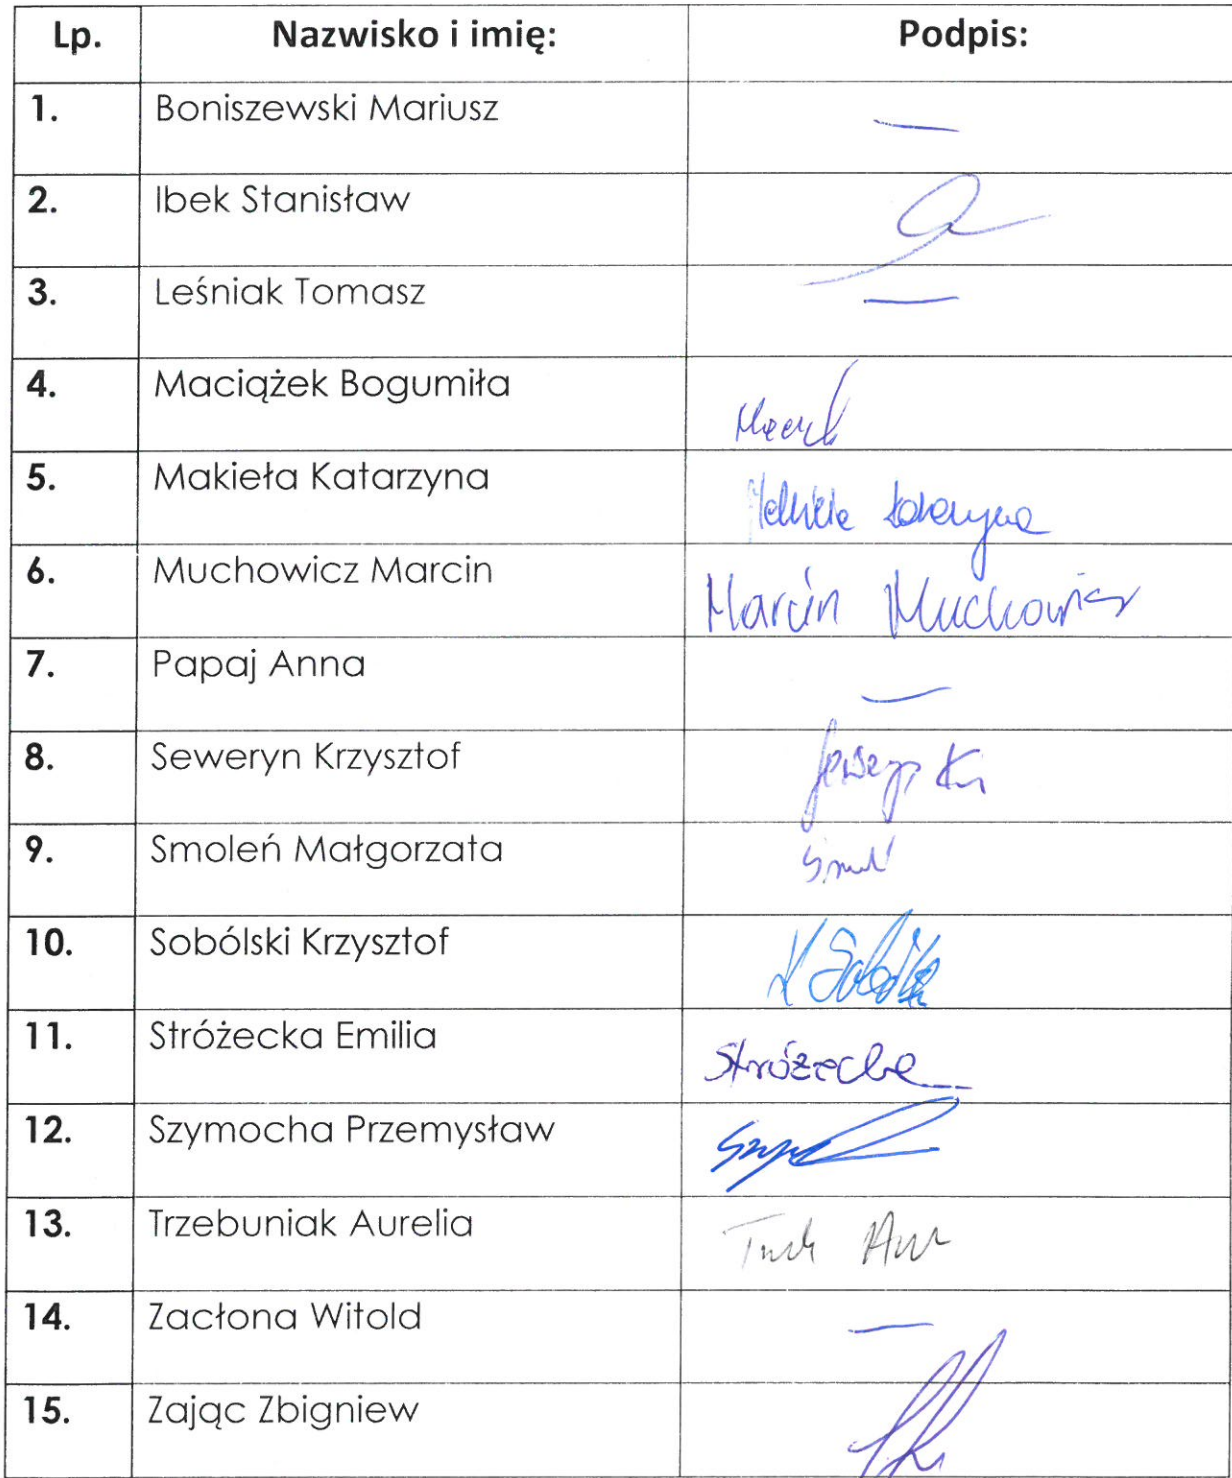 Lp. Nazwisko i imię: Podpis:
1. Boniszewski Mariusz —
2. Ibek Stanisław
3. Leśniak Tomasz —
4. Maciążek Bogumiła
5. Makieła Katarzyna
6. Muchowicz Marcin Marcin Muchowicz
7. Papaj Anna —
8. Seweryn Krzysztof
9. Smoleń Małgorzata
10. Sobólski Krzysztof
11. Stróżecka Emilia Stróżecka
12. Szymocha Przemysław
13. Trzebuniak Aurelia
14. Zacłona Witold —
15. Zając Zbigniew